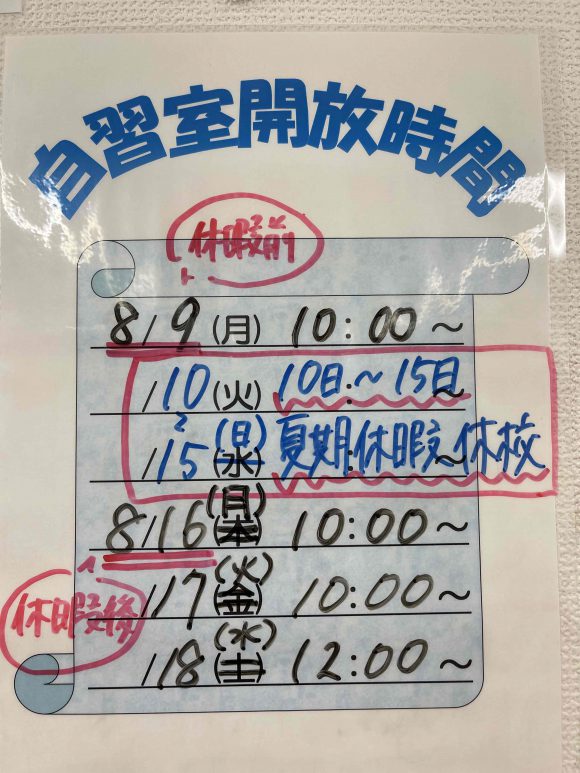 自習室開放時間
休暇前
8/9(月) 10:00~
/10(火) 10日~15日
/15(日) 夏期休暇 休校
8/16(月) 10:00~
休暇後
/17(火) 10:00~
/18(水) 12:00~